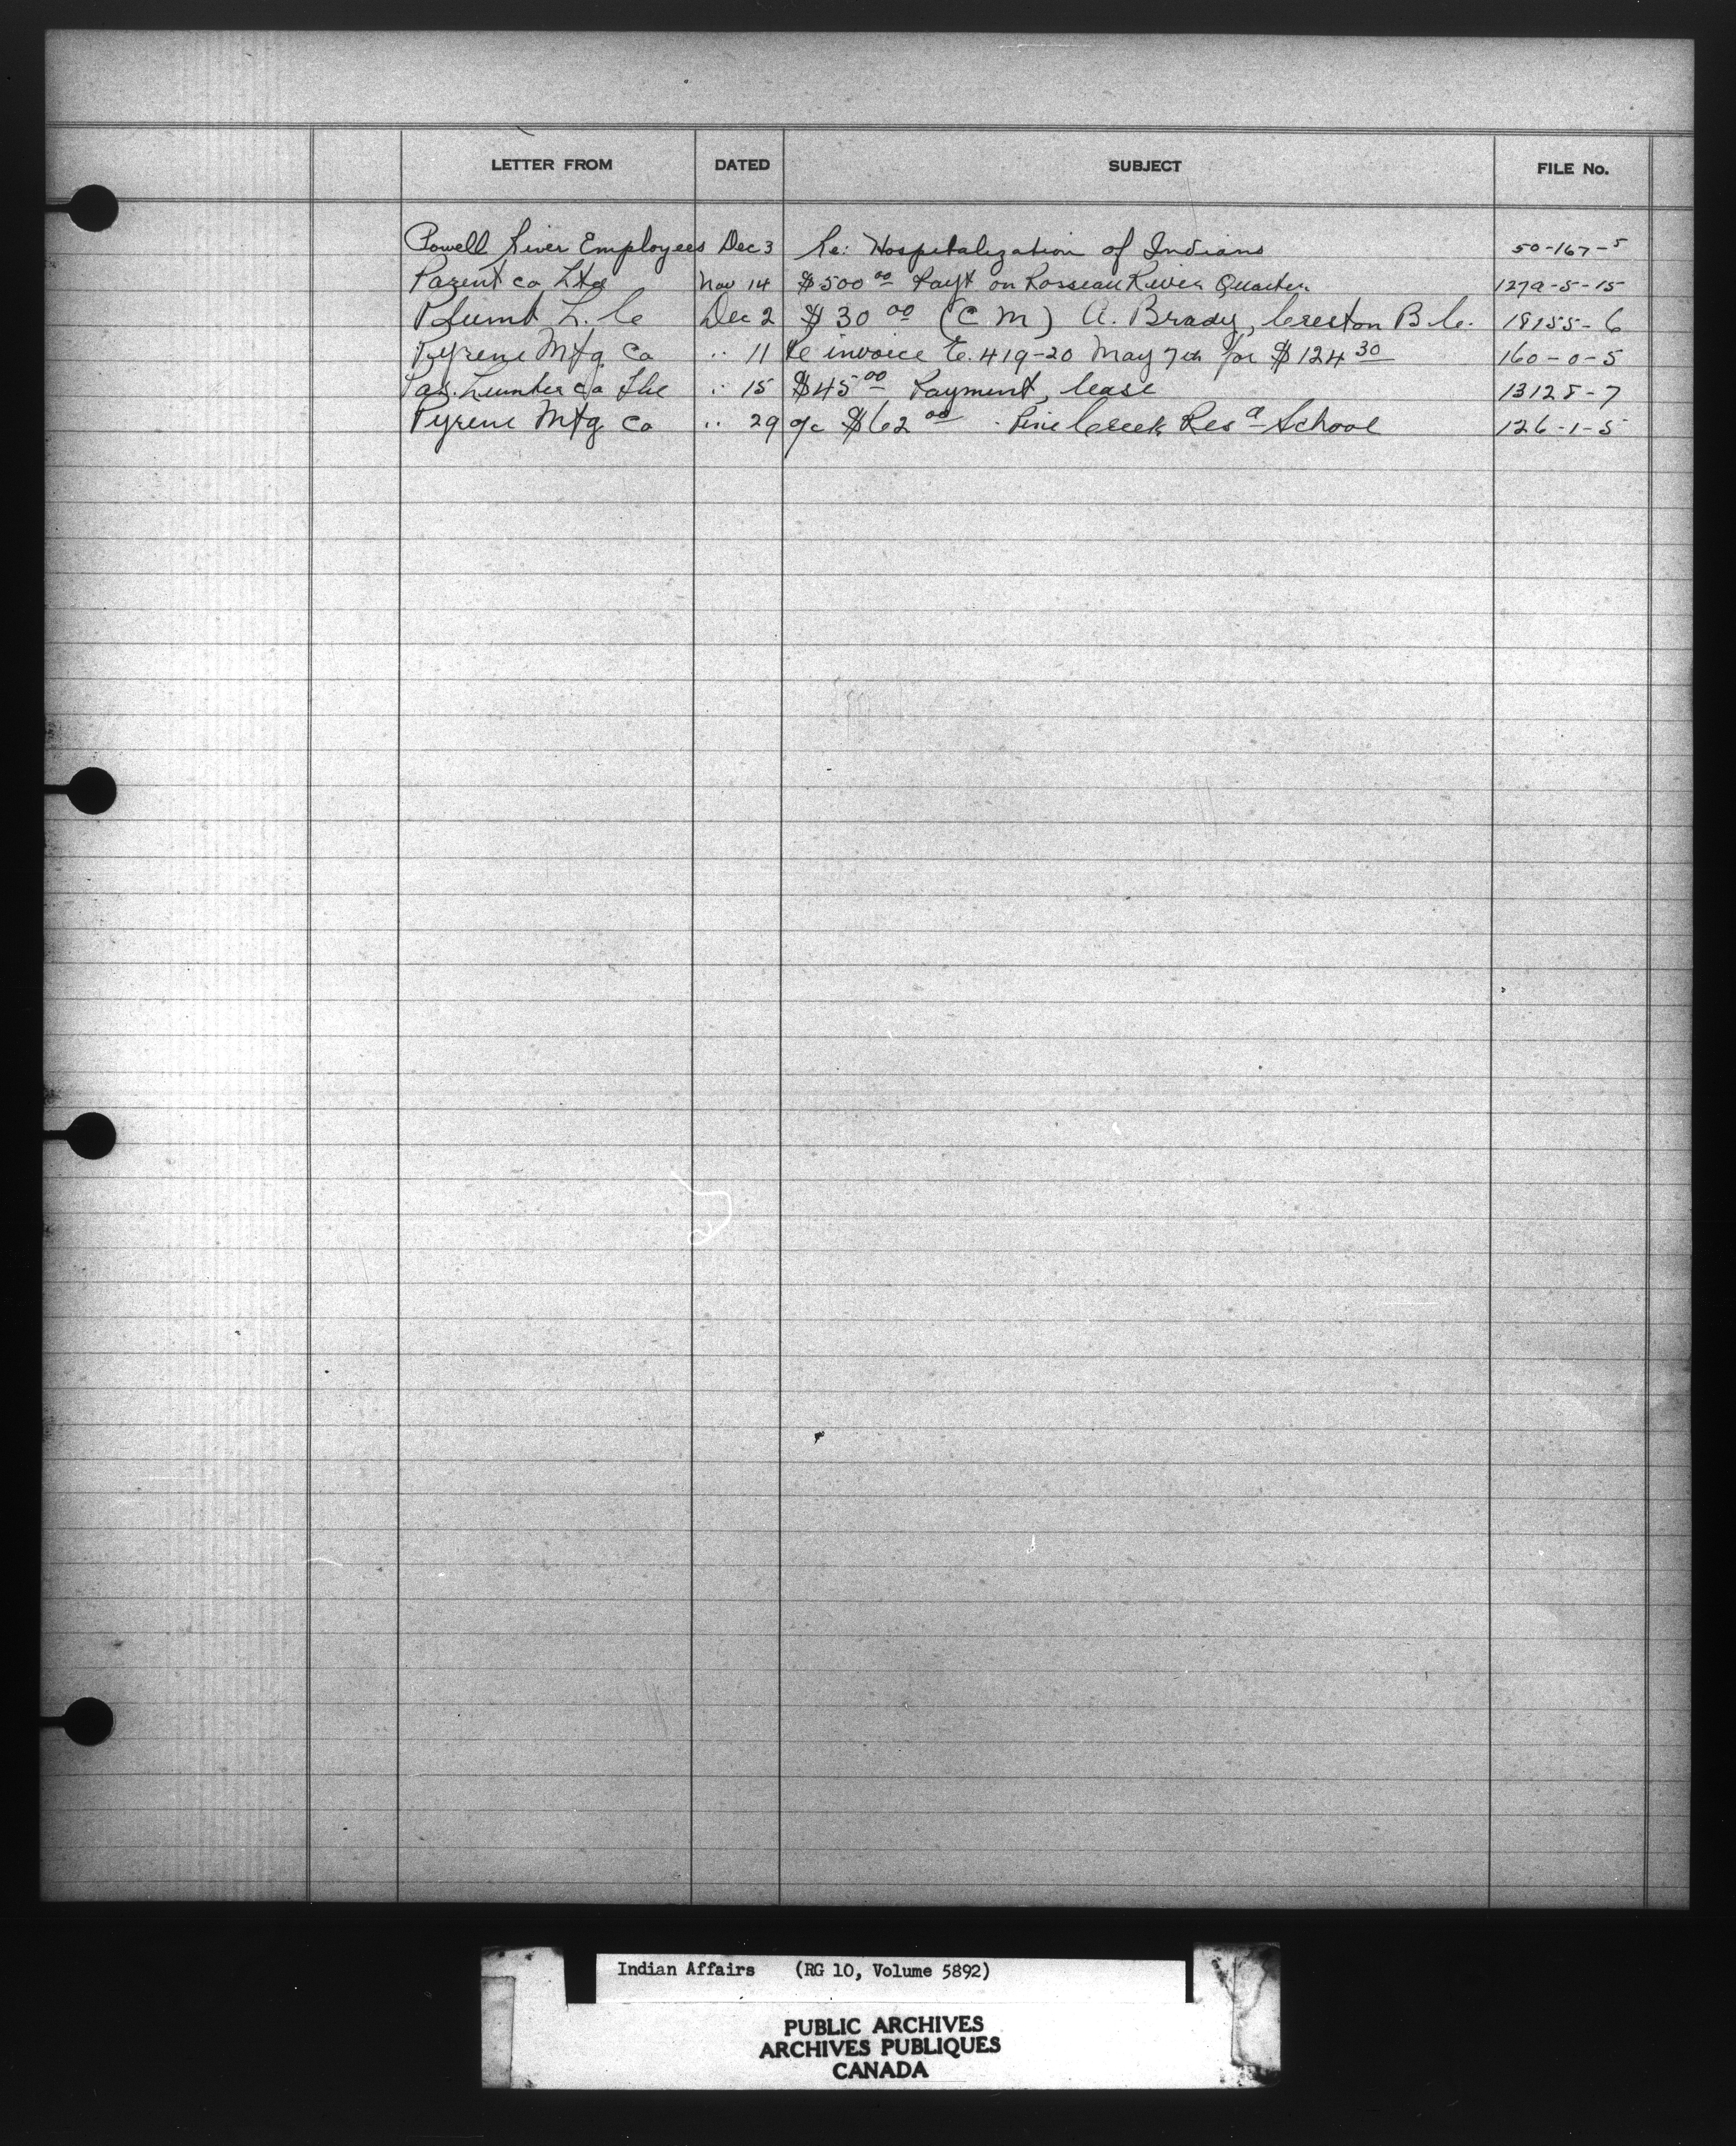 LETTER FROM DATED SUBJECT FILE No.
Powell River Employees Dec 3 Re: Hospitalization of Indians 50-167-5
Parent Co Ltd Nov 14 $500 00 Payt on Rosseau River Quarter 127a-5-15
L. C. Dec 2 $30 00 (C.M) A. Brady, Creston B.C. 18155-6
Pyrene Mfg Co " 11 Re invoice E. 419-20 May 7th for $124 30 160-0-5
Pas. Lumber Co The " 15 $45 00 Payment, lease 13128-7
Pyrene Mfg Co " 29 a/c $62 00 - Pine Creek Res a School 126-1-5
Indian Affairs (RG 10, Volume 5892)
PUBLIC ARCHIVES
ARCHIVES PUBLIQUES
CANADA